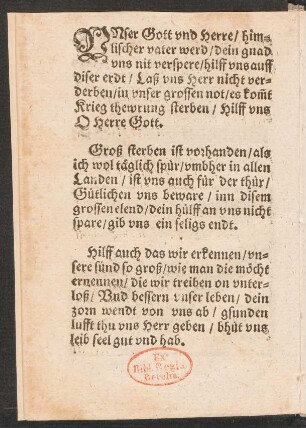 VNser Gott vnd Herre/ him-
lischer vater werd/ dein gnad
vns nit verspere/ hilff vns auff
diser erdt/ Laß vns Herr nicht ver-
derben/ in vnser grossen not/ es kom̃t
Krieg thewrung sterben/ Hilff vns
O Herre Gott.
Groß sterben ist vorhanden/ als
ich wol täglich spür/ vmbher in allen
Landen/ ist vns auch für der thür/
Gütlichen vns beware/ inn disem
grossen elend/ dein hülff an vns nicht
spare/ gib vns ein seligs endt.
Hilff auch das wir erkennen/ vn-
sere sünd so groß/ wie man die möcht
ernennen/ die wir treiben on vnter-
loß/ Vnd bessern vnser leben/ dein
zorn wendt von vns ab/ gsunden
lufft thu vns Herr geben/ bhüt vns
leib seel gut vnd hab.
Ex
Bibl. Regia
Berolin.